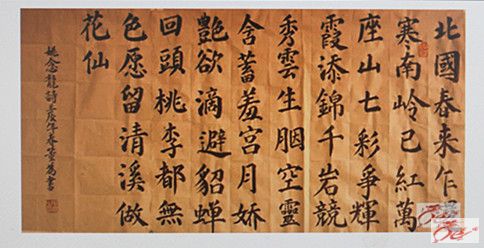 北國春来乍
寒南岭已紅萬
座山七彩爭輝
霞添錦千岩競
秀雲生胭空靈
含蓄羞宮月嬌
艷欲滴避貂蟬
回頭桃李都無
色愿留清溪做
花仙
姚念龍詩午春董為書